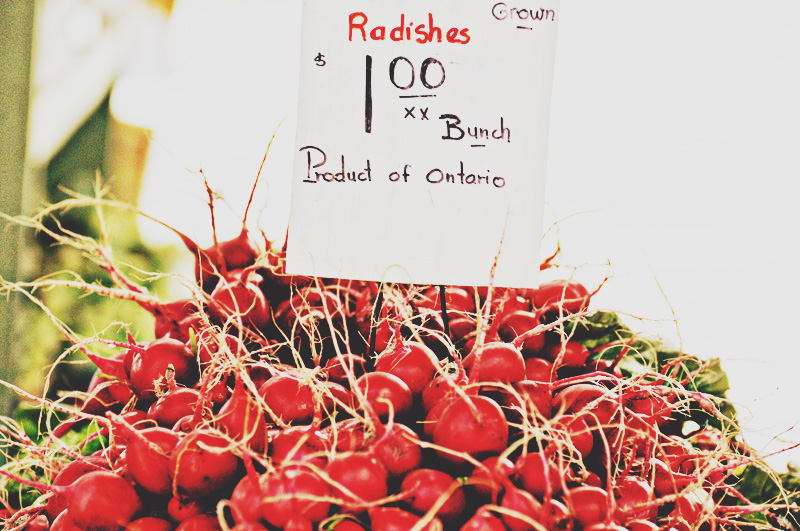 Grown
Radishes
$ 1 00
xx
Bunch
Product of Ontario